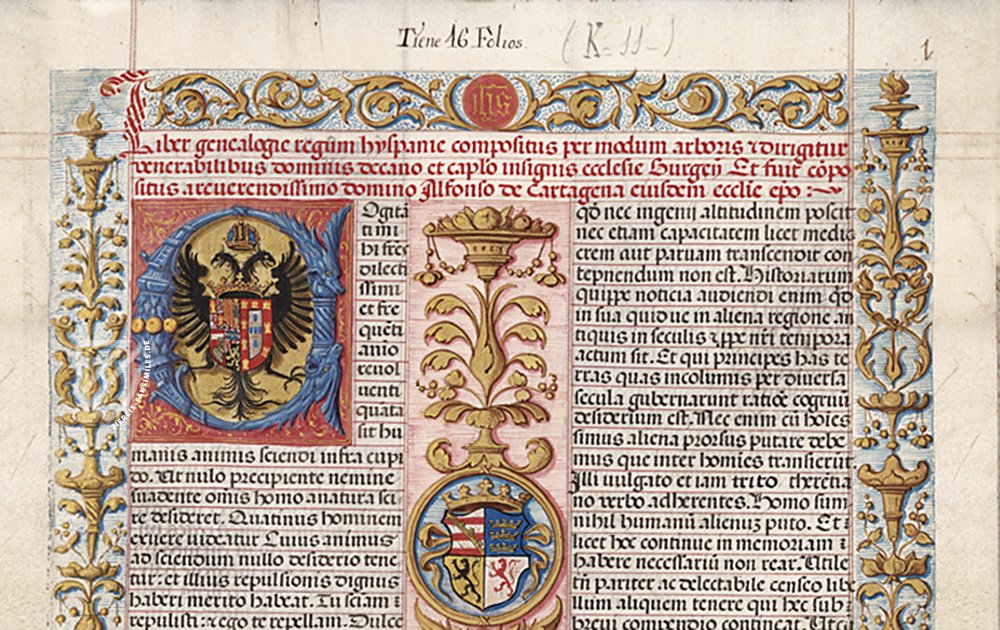 Tiene 16 Folios. (K-11-)
1
ihs
Liber genealogie regum hyspanie compositus per modum arboris ⁊ dirigitur
venerabilibus dominis decano et caplo insignis ecclesie Burgeñ Et fuit cōpo
situs a reverendissimo domino Alfonso de cartagena eiusdem ecclie epo :~
Ogita
ti mi
hi fres
dilecti
ssimi
et fre
quēti
anio
reuol
uenti
quata
sit hu
manis animis sciendi infra cupi
do. Ut nulo precipiente nemine
suadente omis homo a natura sci
re desideret. Quatinus hominem
exuere videatur Cuius animus
ad sciendum nullo desiderio tene
tur: et illius repulsionis dignus
haberi merito habeat. Tu sciam :
repulisti: ⁊ ego te repellam. Dulce
qō nec ingenij altitudinem poscit
nec etiam capacitatem licet medio
crem aut paruam transcendit con
tepnendum non est. Historiarum
quippe noticia audiendi enim qd
in sua quid ue in aliena regione an
tiquis in seculis ⁊ ꝓpe nr̄i tempora
actum sit. Et qui principes has te
rras quas incolumis per diuersa
secula gubernarunt ratiōe cognitū
desiderium est. Nec enim cū hoies
simus aliena prorsus putare debe
mus que inter homies transierūt
Illi vulgato et iam trito therētia
no verbo adherentes. Homo sum
nihil humanū alienuz puto. Et :
licet hoc continue in memoriam :
habere necessariū non rear. Utile
tn̄ pariter ac delectabile censeo libe
llum aliquem tenere qui hec sub :
breui compendio contineat. Utcu
ZIEREIS-FAKSIMILES.DE